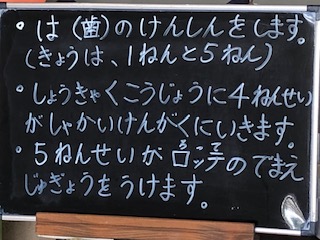 ・は(歯)のけんしんをします。
(きょうは、1ねんと5ねん)
・しょうきゃくこうじょうに4ねんせい
がしゃかいけんがくにいきます。
・5ねんせいがロッテのでまえ
じゅぎょうをうけます。